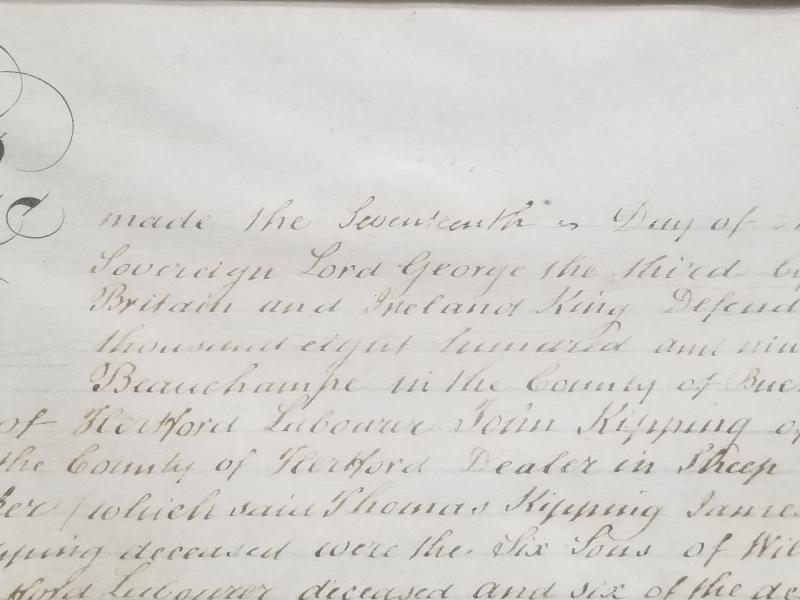 made the Seventeenth Day of
Sovereign Lord George the third by
Britain and Ireland King Defend
thousand eight hundred and nin
Beauchampe in the County of Buc
of Hertford Labourer John Kipping of
the County of Hertford Dealer in Sheep
ker (which said Thomas Kipping James
pping deceased were the Six Sons of Wil
tford Labourer deceased and six of the de